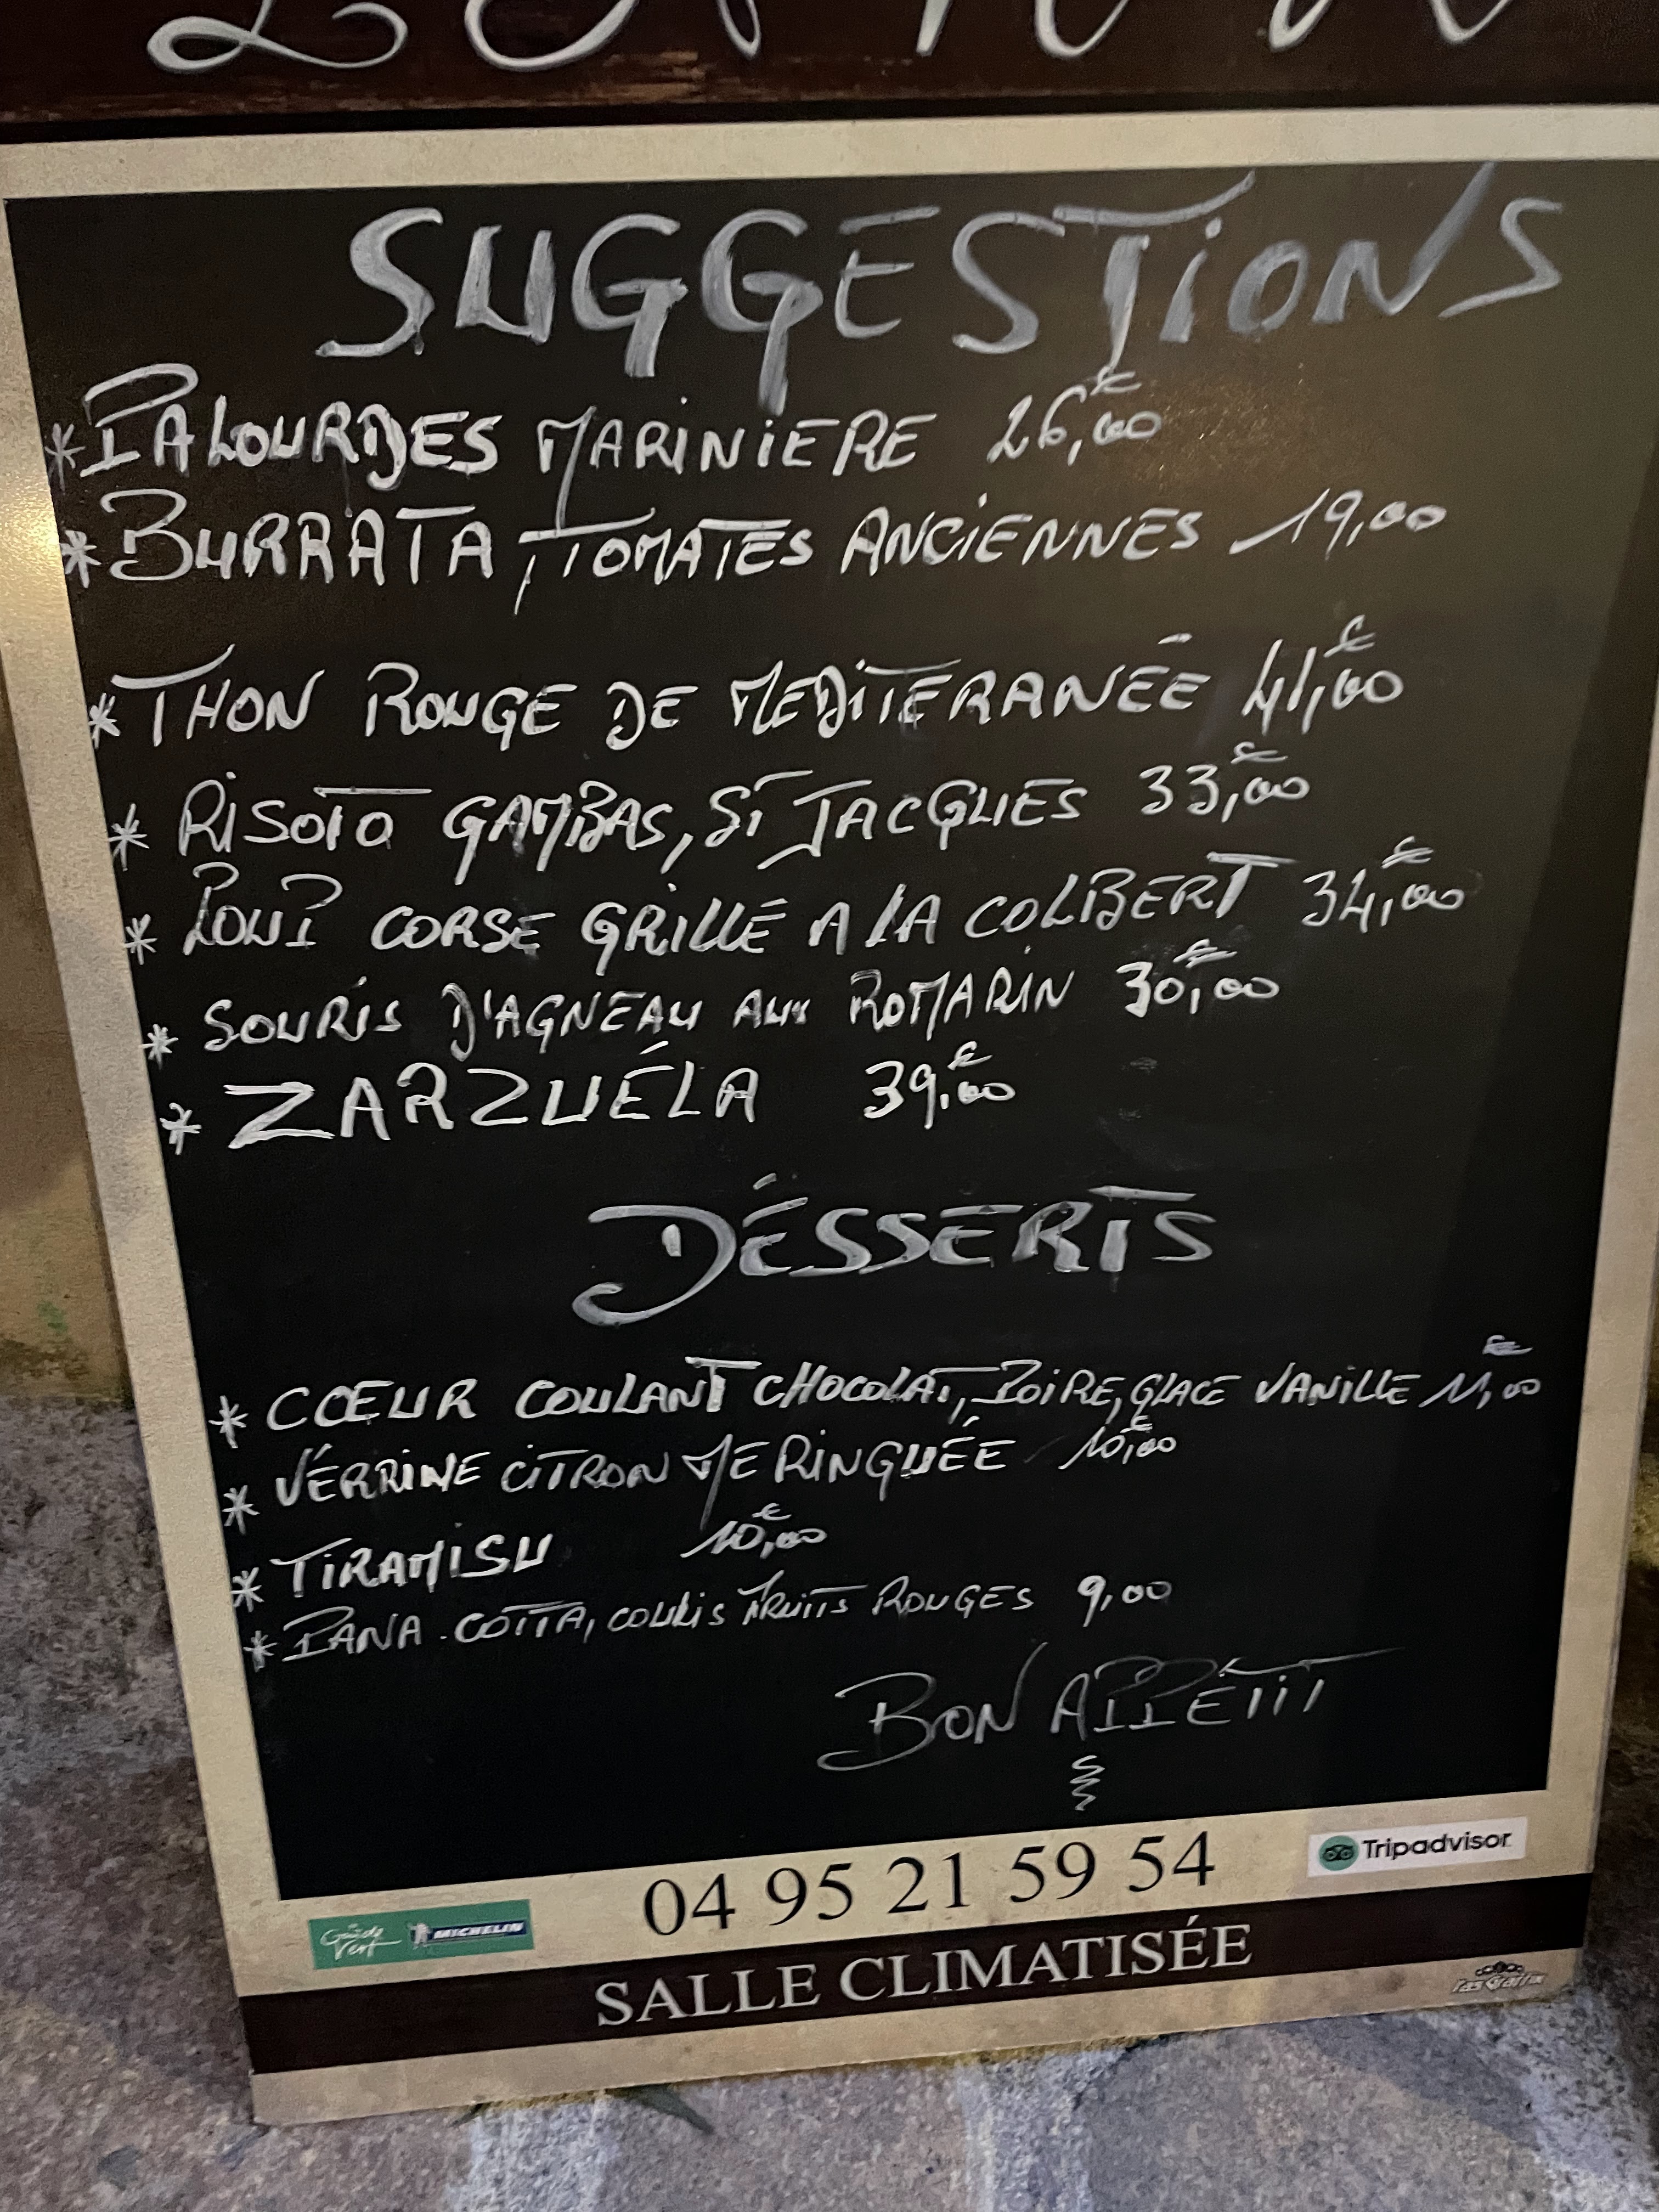 SUGGESTIONS
* PALOURDES MARINIERE 26,00€
* BURRATA TOMATES ANCIENNES 19,00
* THON ROUGE DE MEDITERANÉE 41,00€
* RISOTO GAMBAS, ST JACQUES 33,00€
* LOUP CORSE GRILLÉ A LA COLBERT 34,00€
* SOURIS D'AGNEAU AUX ROMARIN 30,00€
* ZARZUÉLA 39,00€
DÉSSERTS
* CŒUR COULANT CHOCOLAT, POIRE, GLACE VANILLE 11,00€
* VÉRRINE CITRON MERINGUÉE 10,00€
* TIRAMISU 10,00€
* PANA COTTA, COULIS FRUITS ROUGES 9,00
BON APPÉTIT
04 95 21 59 54
Tripadvisor
Guide Vert MICHELIN
SALLE CLIMATISÉE